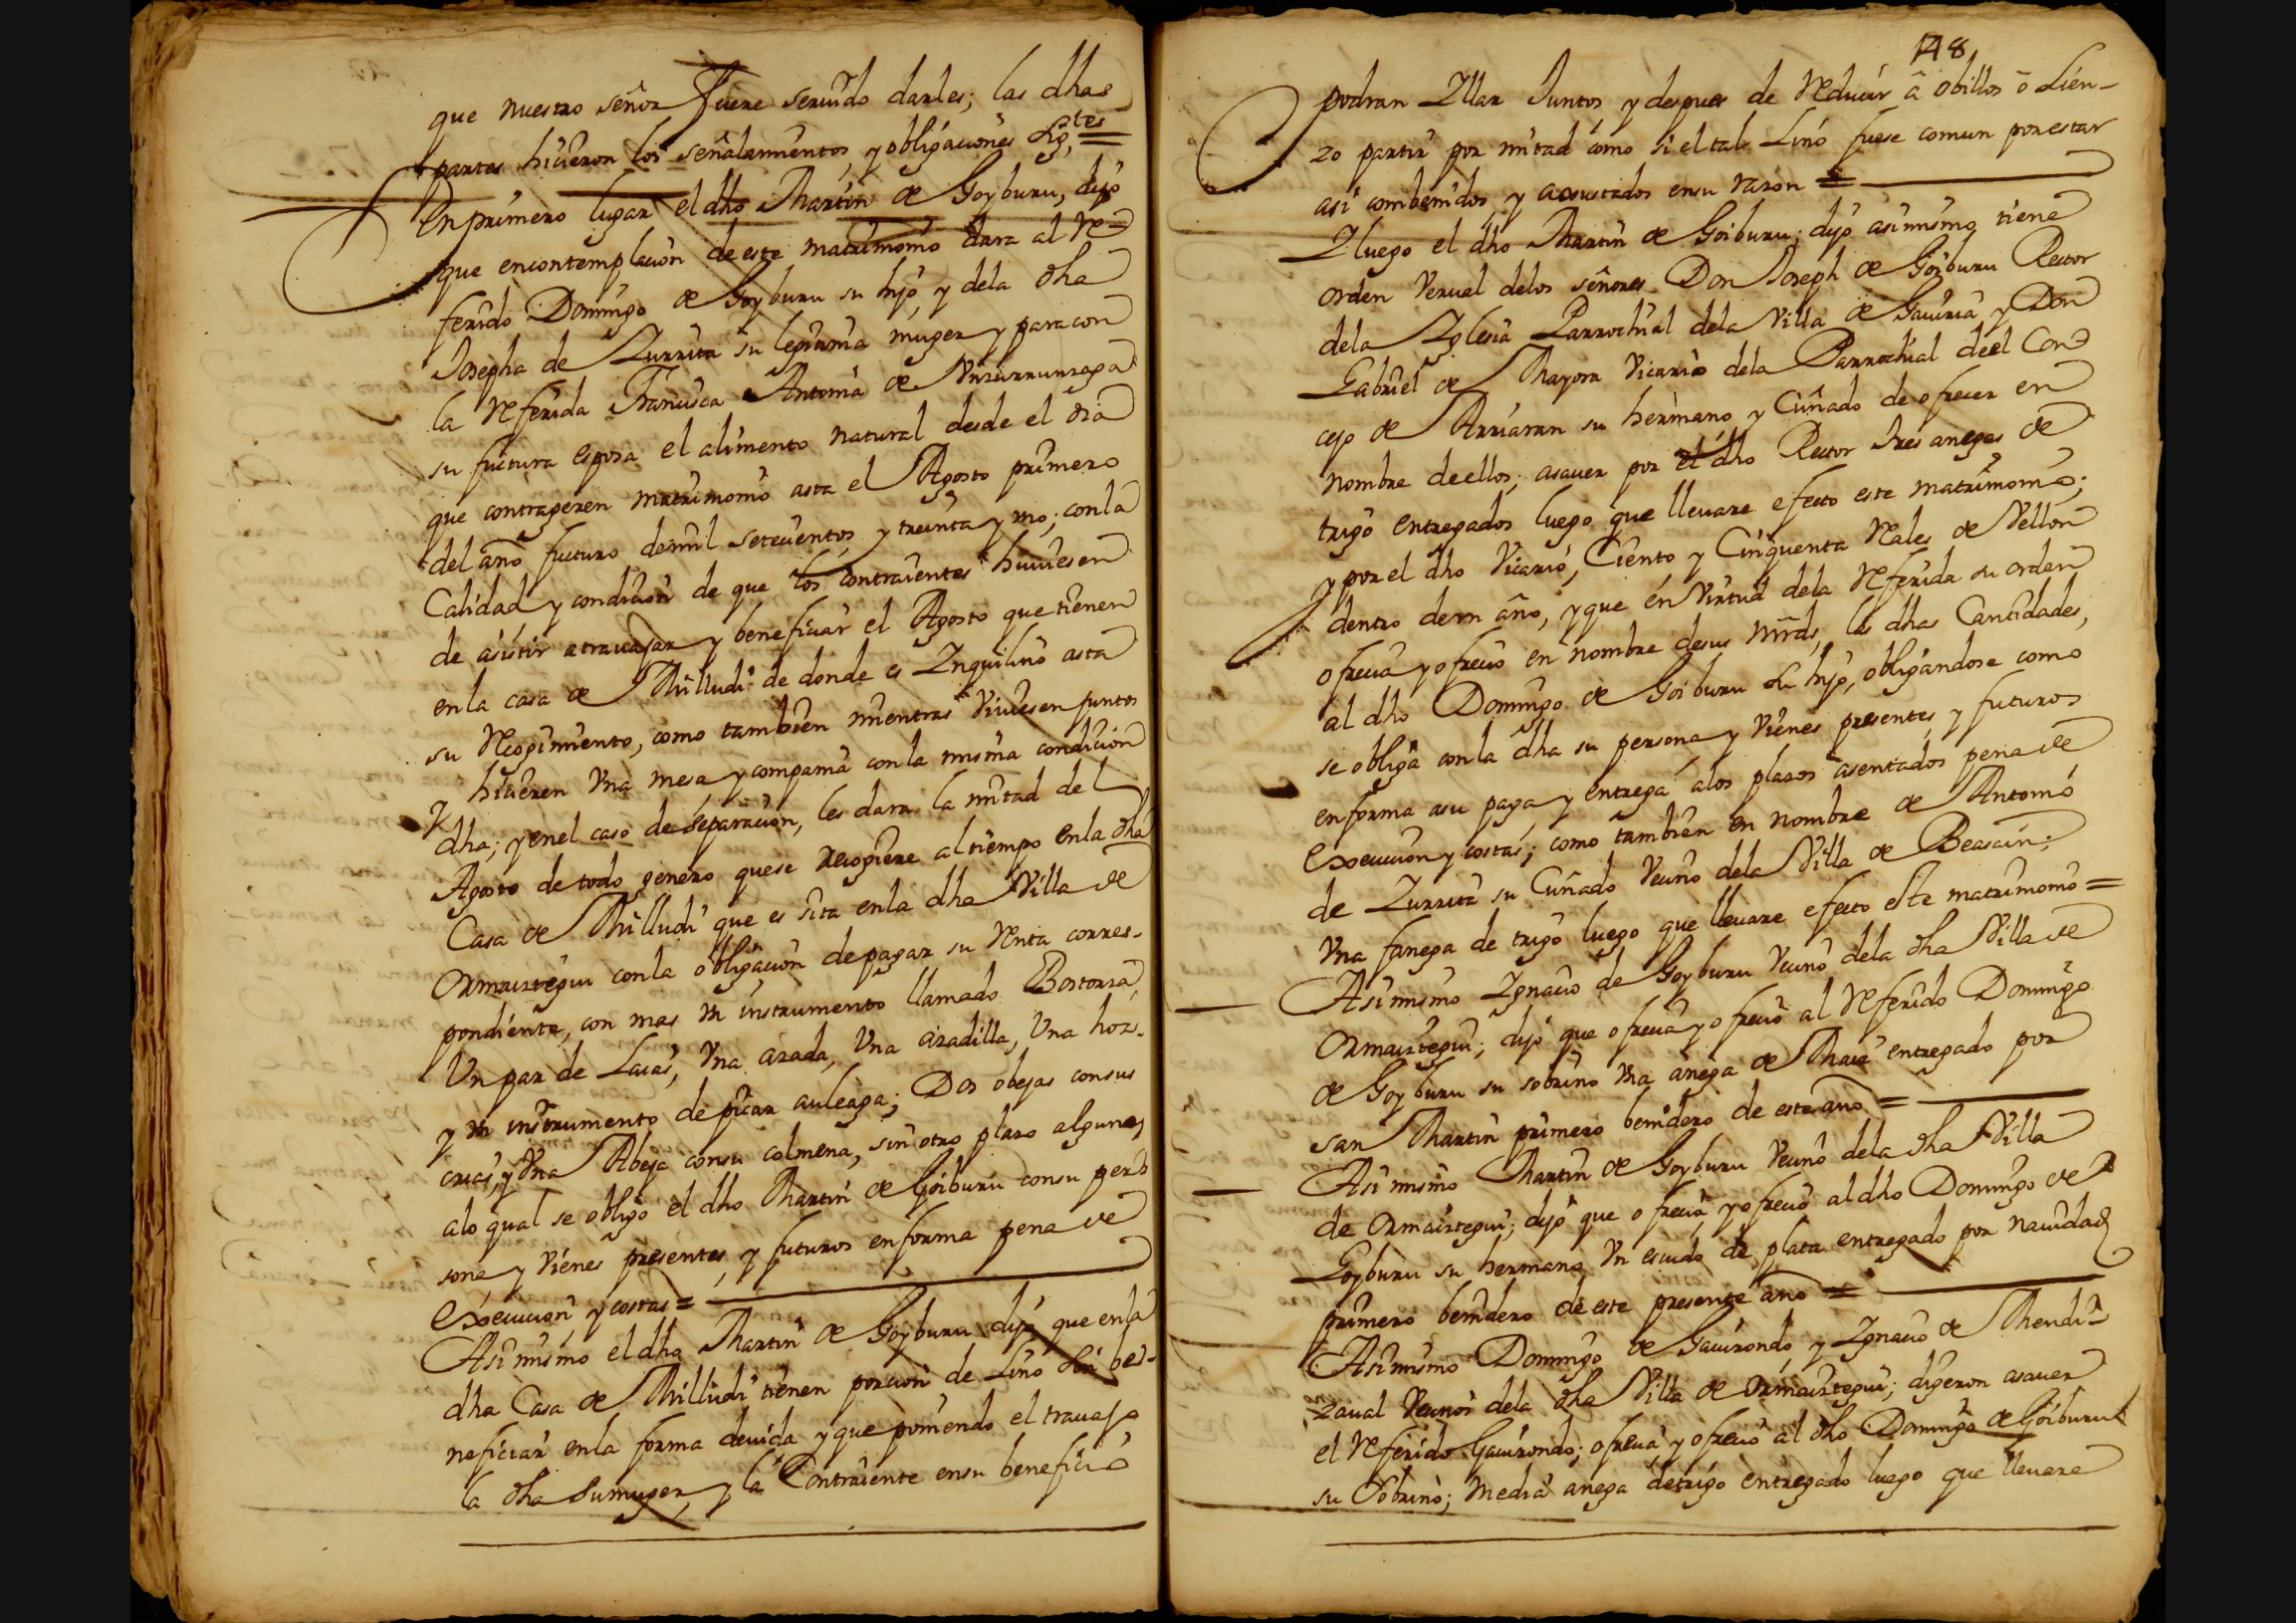 que nuestro señor fuere seruido darles; las dhas
partes hicieron los señalamientos, y obligaciones sig.tes =
En primero lugar el dho Martin de Goyburu, dijo
que encontemplacion de este matrimonio dara al Re-
ferido Domingo de Goyburu su hijo y dela dha
Josepha de Zurrita su legitima muger y para con
la Referida Francisca Antonia de
su futura esposa el alimento natural desde el dia
que contrageren matrimonio asta el Agosto primero
del año futuro demil setecientos y treinta y uno; con la
Calidad y condicion de que los contraientes huuiesen
de asistir atrauajar y beneficiar el Agosto que tienen
en la casa de Milludi de donde es Inquilino asta
su Recogimiento, como tambien mientras Viuiesen juntos
y hicieren Vna mesa y compania con la misma condicion
dha; y en el caso de separacion, les dara la mitad del
Agosto de todo genero que se recogiere al tiempo en la dha
Casa de Milludi que es sita en la dha Villa de
Ormaiztegui con la obligacion de pagar su Renta corres-
pondiente, con mas Vn instrumento llamado Bostorza,
Vn par de Laias, Vna azada, Vna azadilla, Vna hoz-
y Vn instrumento de picar auleaga; Dos obejas consus
crias, y Vna Abeja consu colmena, sin otro plazo alguno,
alo qual se obligo el dho Martin de Goiburu consu per-
sona y Vienes presentes, y futuros en forma pena de
Execucion y costas =
Asimismo el dho Martin de Goyburu dijo que en la
dha Casa de Milludi tienen porcion de Lino sin be-
neficiar en la forma deuida y que poniendo el trauajo
la dha su muger, y la Contraiente ensu beneficio
148
podran Illar Juntos y despues de Reducir â obillos ô Lien-
zo partir por mitad como si el tal Lino fuese comun por estar
asi combenidos y axustados ensu razon =
I luego el dho Martin de Goiburu; dijo asimismo tiene
orden Verual delos señores Don Joseph de Goiburu Rector
dela Iglesia Parrochial dela Villa de Gauiria y Don
Gabriel de Mayora Vicario dela Parrochial de el Con-
cejo de Arriaran su hermano y Cuñado de ofrecer en
nombre de ellos; asauer por el dho Rector tres anegas de
trigo entregados luego que lleuare efecto este matrimonio;
y por el dho Vicario, Ciento y Cinquenta Reales de Vellon
dentro de vn año, y que en Virtud dela Referida su orden
ofrecia y ofrecio en nombre desus mrds, las dhas Cantidades,
al dho Domingo de Goiburu su hijo, obligandose como
se obliga con la dha su persona y Vienes presentes y futuros
en forma asu paga y entrega alos plazos asentados pena de
Execucion y costas; como tambien en nombre de Antonio
de Zurrita su Cuñado Vecino dela Villa de Beasain;
Vna fanega de trigo luego que lleuare efecto este matrimonio =
Asimismo Ignacio de Goyburu Vecino dela dha Villa de
Ormaiztegui; dijo que ofrecia y ofrecio al Referido Domingo
de Goyburu su sobrino Vna anega de Maiz entregado por
san Martin primero benidero de este año =
Asimismo Martin de Goyburu Vecino dela dha Villa
de Ormaiztegui; dijo que ofrecia y ofrecio al dho Domingo de
Goyburu su hermano Vn escudo de plata entregado por nauidad
primero benidero de este presente año =
Asimismo Domingo de Gauirondo, y Ignacio de Mendi-
zaual Vecinos dela dha Villa de Ormaiztegui; digeron asauer
el Referido Gauirondo; ofrecia y ofrecio al dho Domingo de Goiburu
su Sobrino; media anega de trigo entregado luego que lleuare